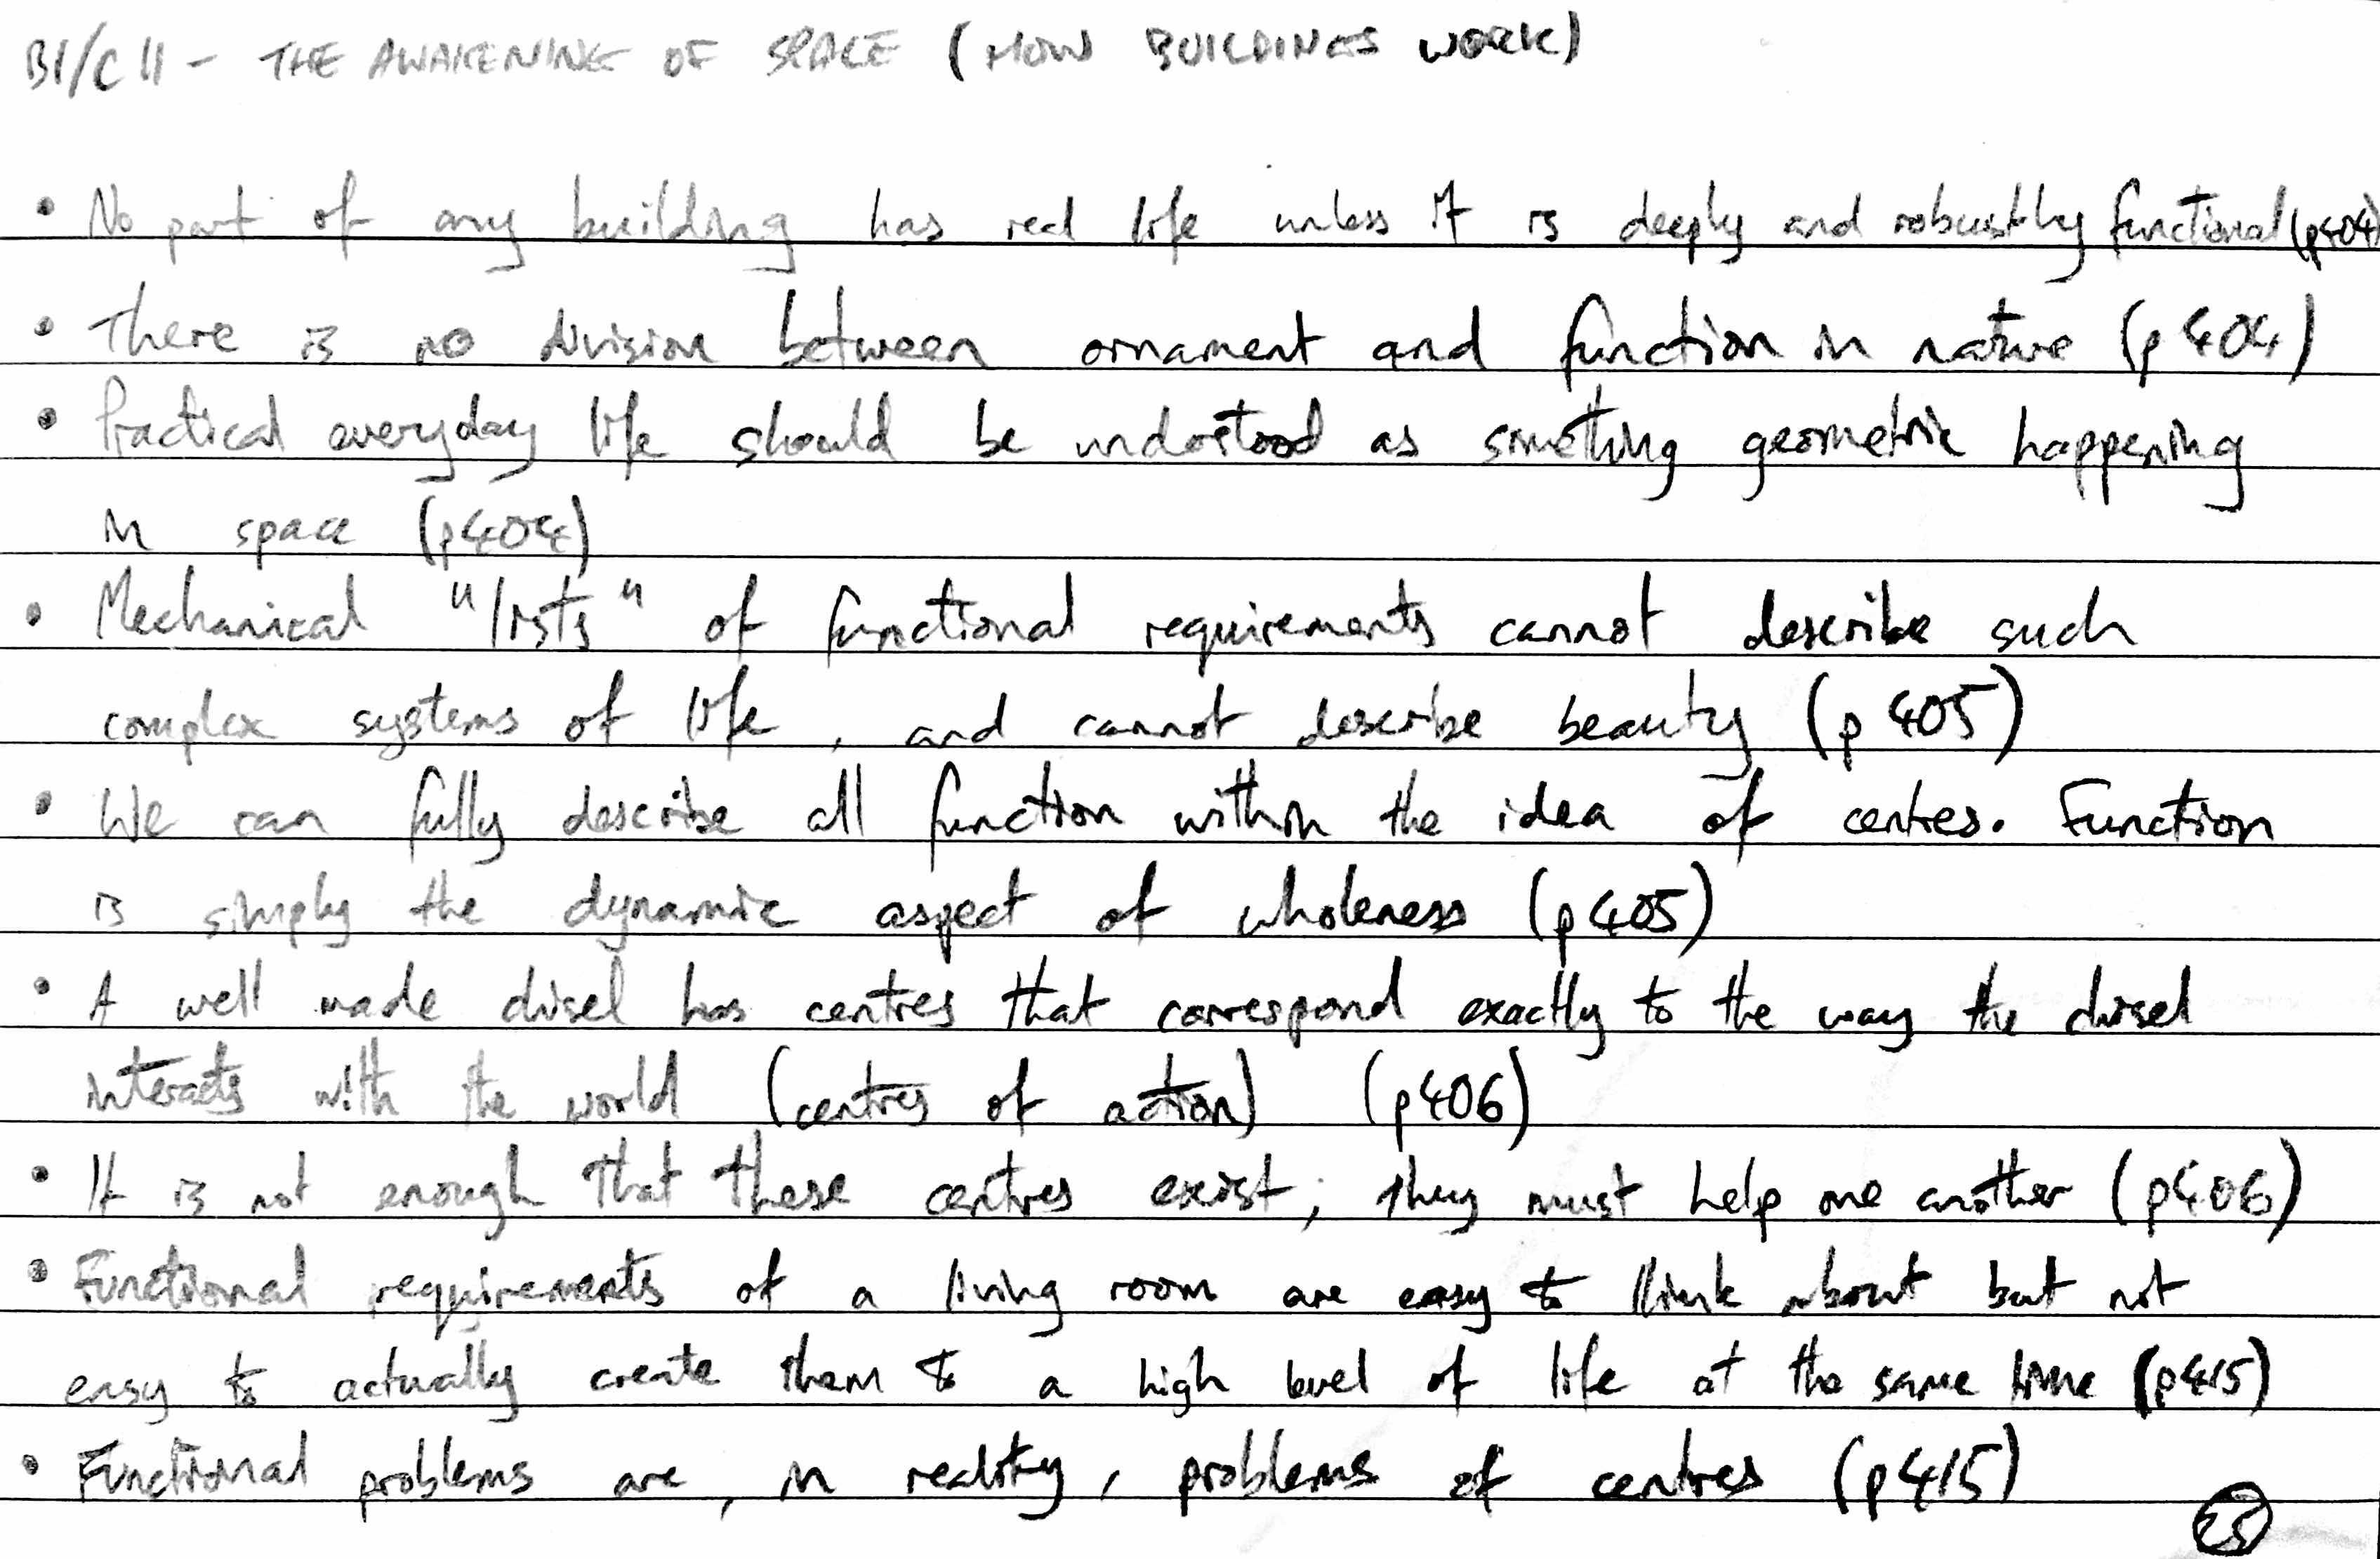 B1/C11 - THE AWAKENING OF SPACE (HOW BUILDINGS WORK)
• No part of any building has real life unless it is deeply and robustly functional (p404)
• There is no division between ornament and function in nature (p404)
• Practical everyday life should be understood as something geometric happening
in space (p404)
• Mechanical "lists" of functional requirements cannot describe such
complex systems of life, and cannot describe beauty (p405)
• We can fully describe all function within the idea of centres. Function
is simply the dynamic aspect of wholeness (p405)
• A well made chisel has centres that correspond exactly to the way the chisel
interacts with the world (centres of action) (p406)
• It is not enough that these centres exist; they must help one another (p406)
• Functional requirements of a living room are easy to think about but not
easy to actually create them to a high level of life at the same time (p415)
• Functional problems are, in reality, problems of centres (p415)